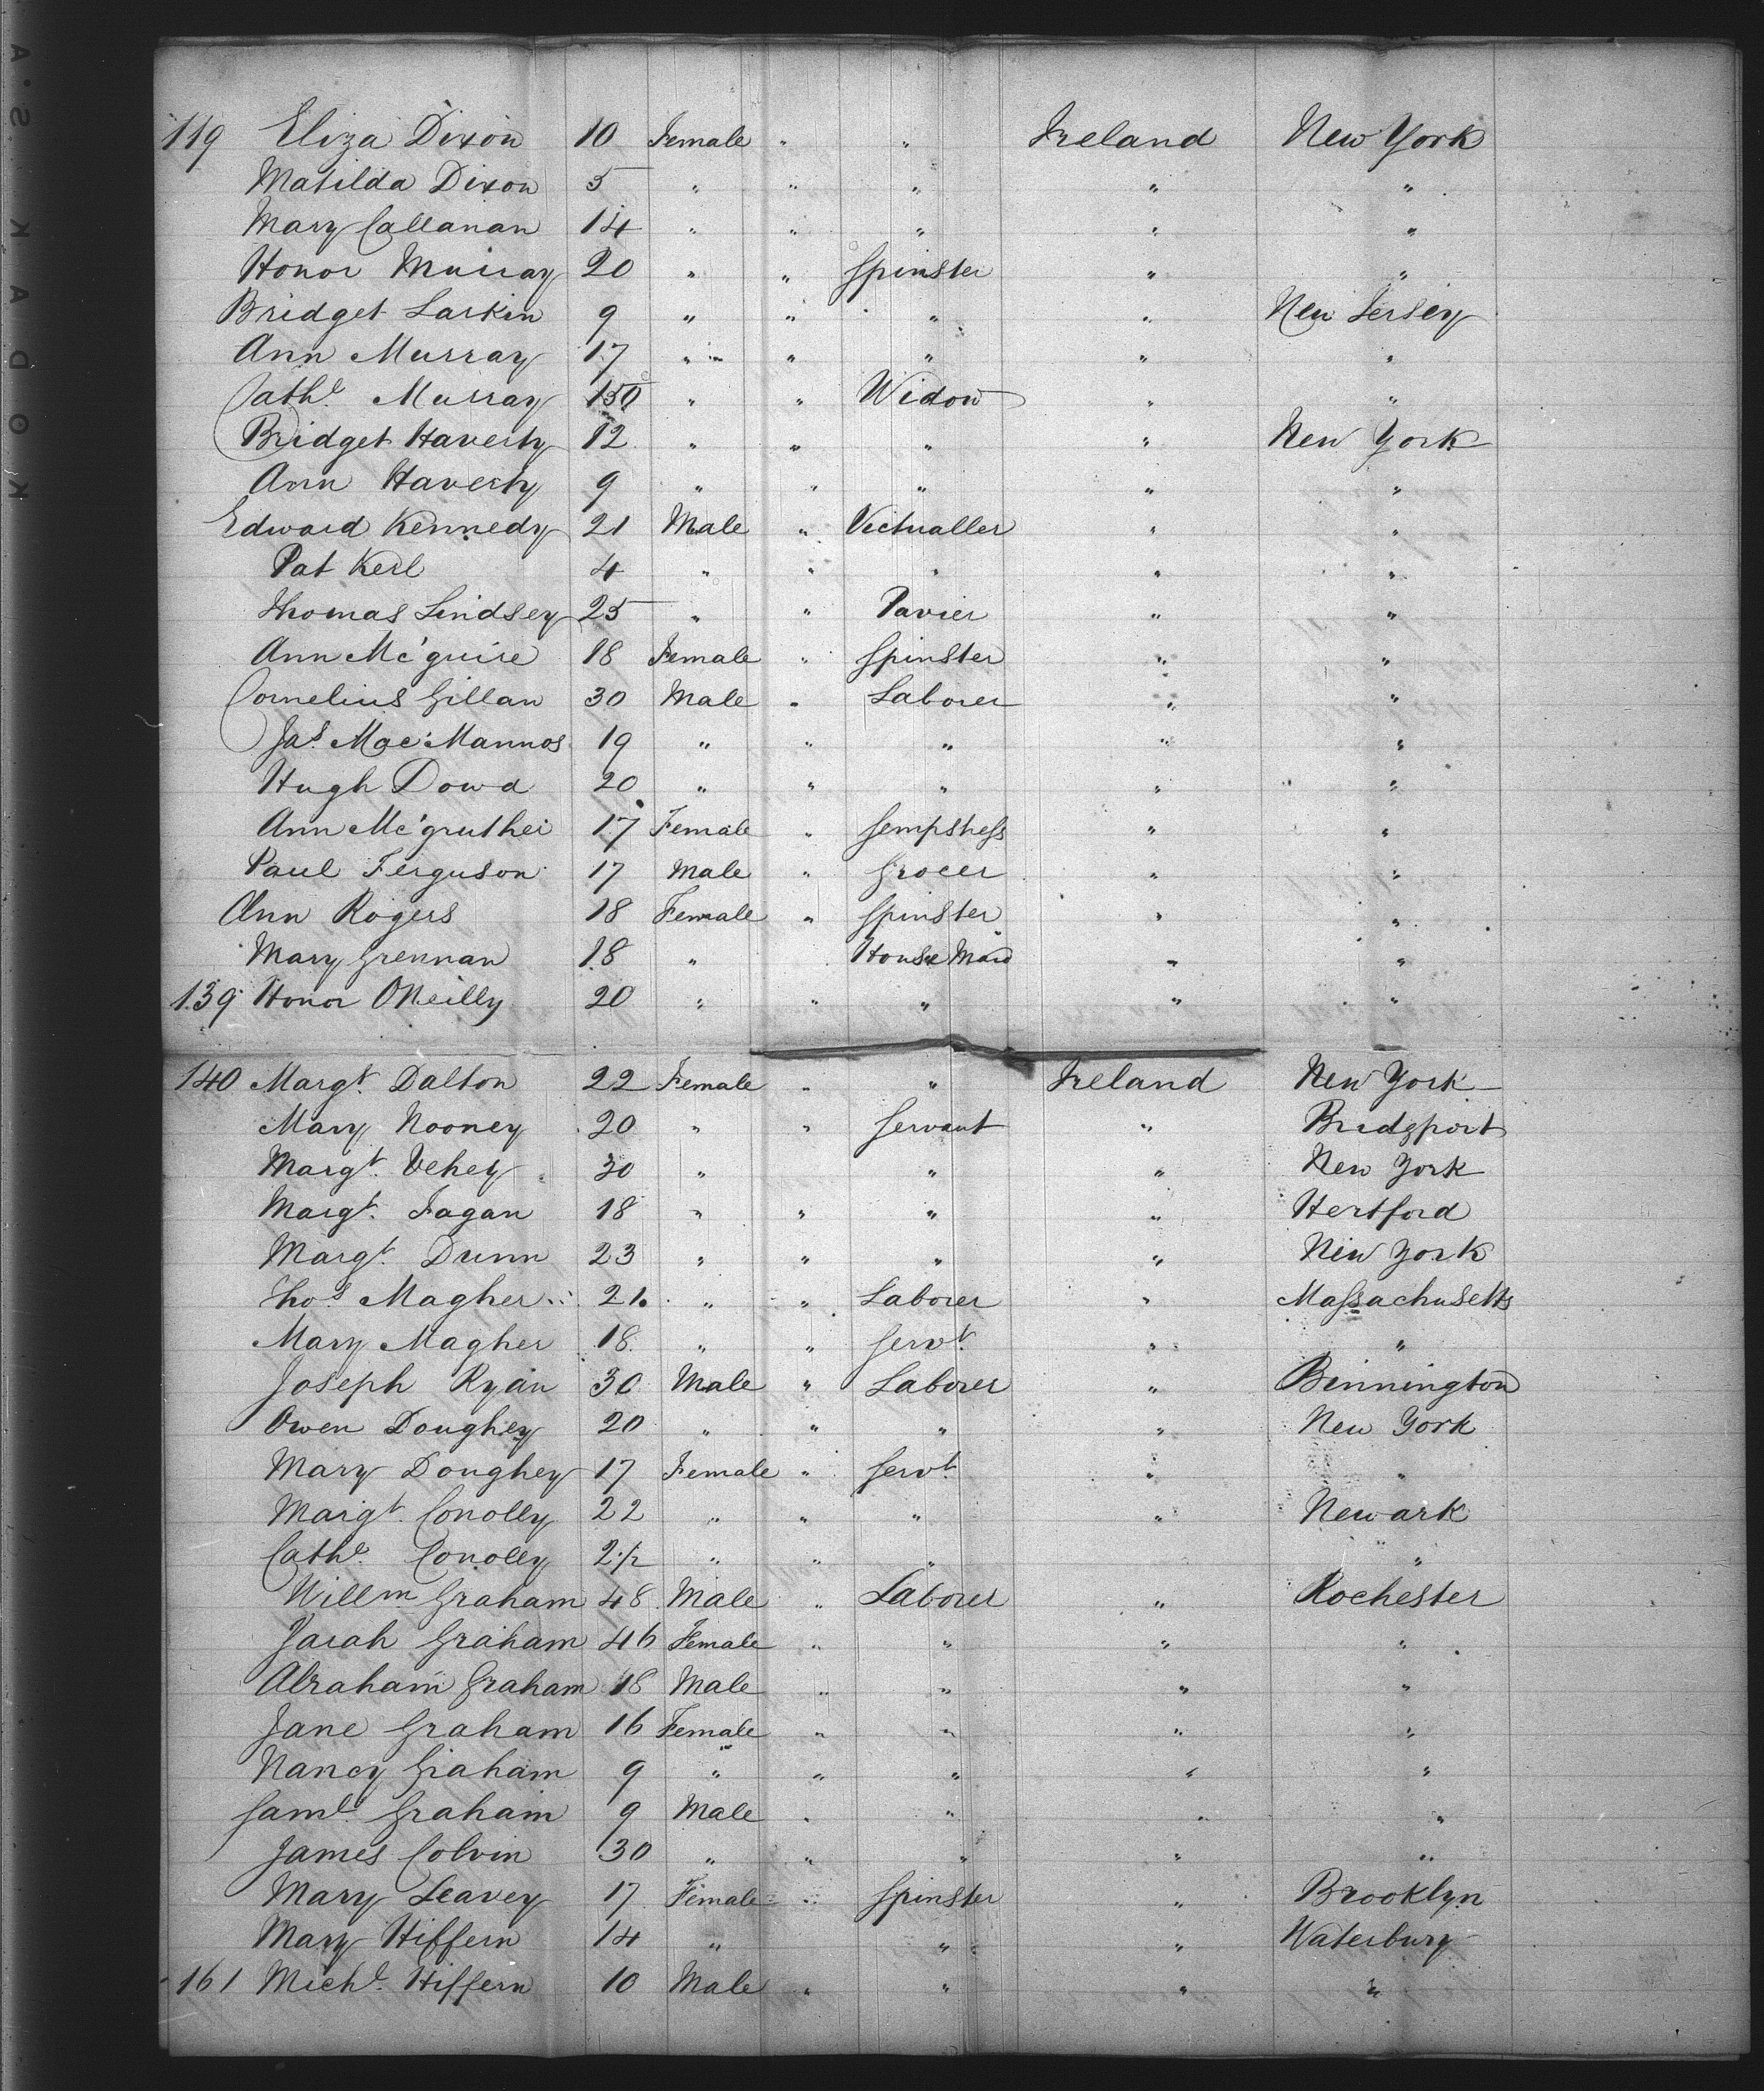 119 Eliza Dixon 10 Female " " Ireland New York
Matilda Dixon 5 " " " " "
Mary Callanan 14 " " " " "
Honor Murray 20 " " Spinster " "
Bridget Larkin 9 " " " " New Jersey
Ann Murray 17 " " " " "
Cathe. Murray " " Widow " "
Bridget Haverty 12 " " " " New York
Ann Haverty 9 " " " " "
Edward Kennedy 21 Male " Victualler " "
Pat Kerl 4 " " " " "
Thomas Lindsey 25 " " Pavier " "
Ann Mc'guire 18 Female " Spinster " "
Cornelius Gillan 30 Male " Laborer " "
Jas. Mac Mannos 19 " " " " "
Hugh Dowd 20 " " " " "
Ann Mc'gruther 17 Female " Sempstress " "
Paul Ferguson 17 Male " Grocer " "
Ann Rogers 18 Female " Spinster " "
Mary Grennan 18 " House Maid " "
139 Honor ONeilly 20 " " " " "
140 Margt. Dalton 22 Female " " Ireland New York
Mary Nooney 20 " " Servant " Bridgport
Margt. Vehey 30 " " " New York
Margt. Fagan 18 " " " " Hertford
Margt. Dunn 23 " " " " New York
Thos. Magher 21 " " Laborer " Massachusetts
Mary Magher 18 " " Servt. " "
Joseph Ryan 30 Male " Laborer " Binnington
Owen Doughey 20 " " " " New York
Mary Doughey 17 Female " Servt. " "
Margt. Conolly 22 " " " " Newark
Cathe. Conolly 2½ " " " "
Willm Graham 48 Male " Laborer " Rochester
Sarah Graham 46 Female " " " "
Abraham Graham 18 Male " " " "
Jane Graham 16 Female " " " "
Nancy Graham 9 " " " " "
Saml. Graham 9 Male " " " "
James Colvin 30 " " " " "
Mary Leavey 17 Female " Spinster " Brooklyn
Mary Hiffern 14 " " " Waterbury
161 Michl. Hiffern 10 Male " " " "
KODAK S.A